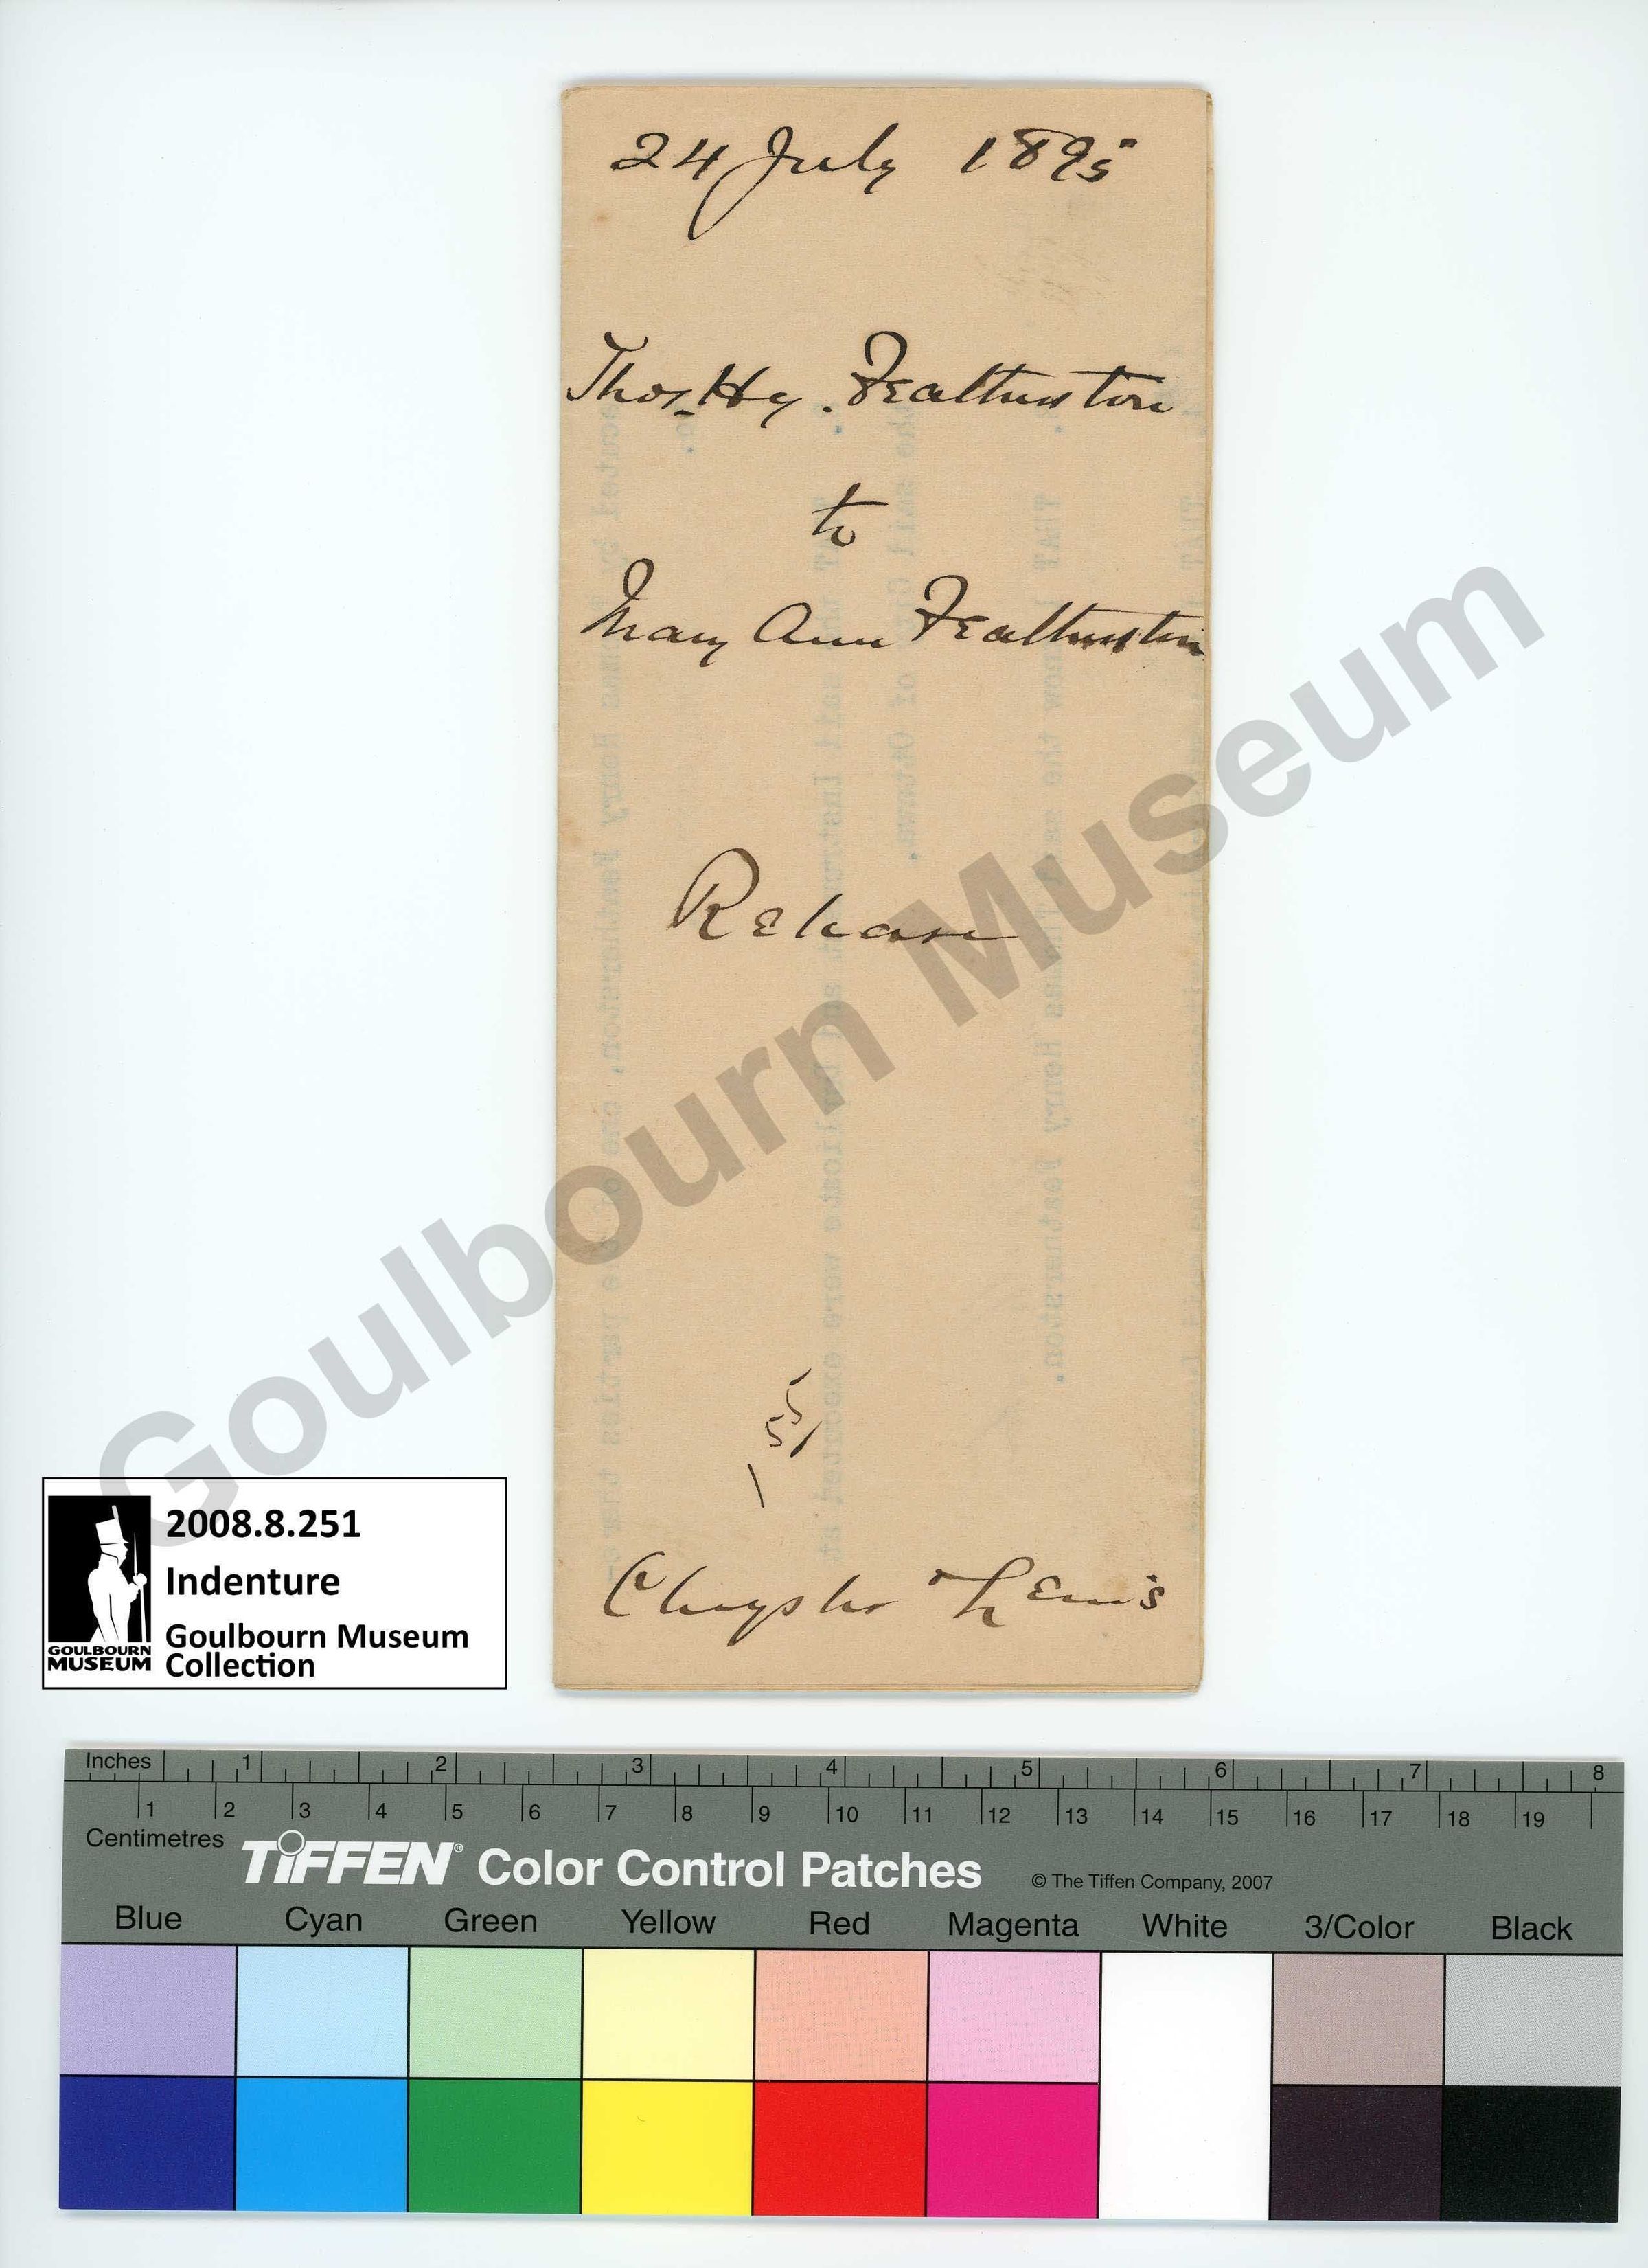 24 July 1895
Thos. Hy. Featherston
to
Mary Ann Featherston
Release
Chrysler & Lewis
Goulbourn Museum
2008.8.251
Indenture
Goulbourn Museum
Collection
GOULBOURN
MUSEUM
Inches 1 2 3 4 5 6 7 8
1 2 3 4 5 6 7 8 9 10 11 12 13 14 15 16 17 18 19
Centimetres
TIFFEN® Color Control Patches © The Tiffen Company, 2007
Blue Cyan Green Yellow Red Magenta White 3/Color Black